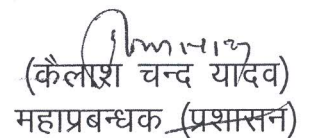 (कैलाश चन्द यादव)
महाप्रबन्धक (प्रशासन)